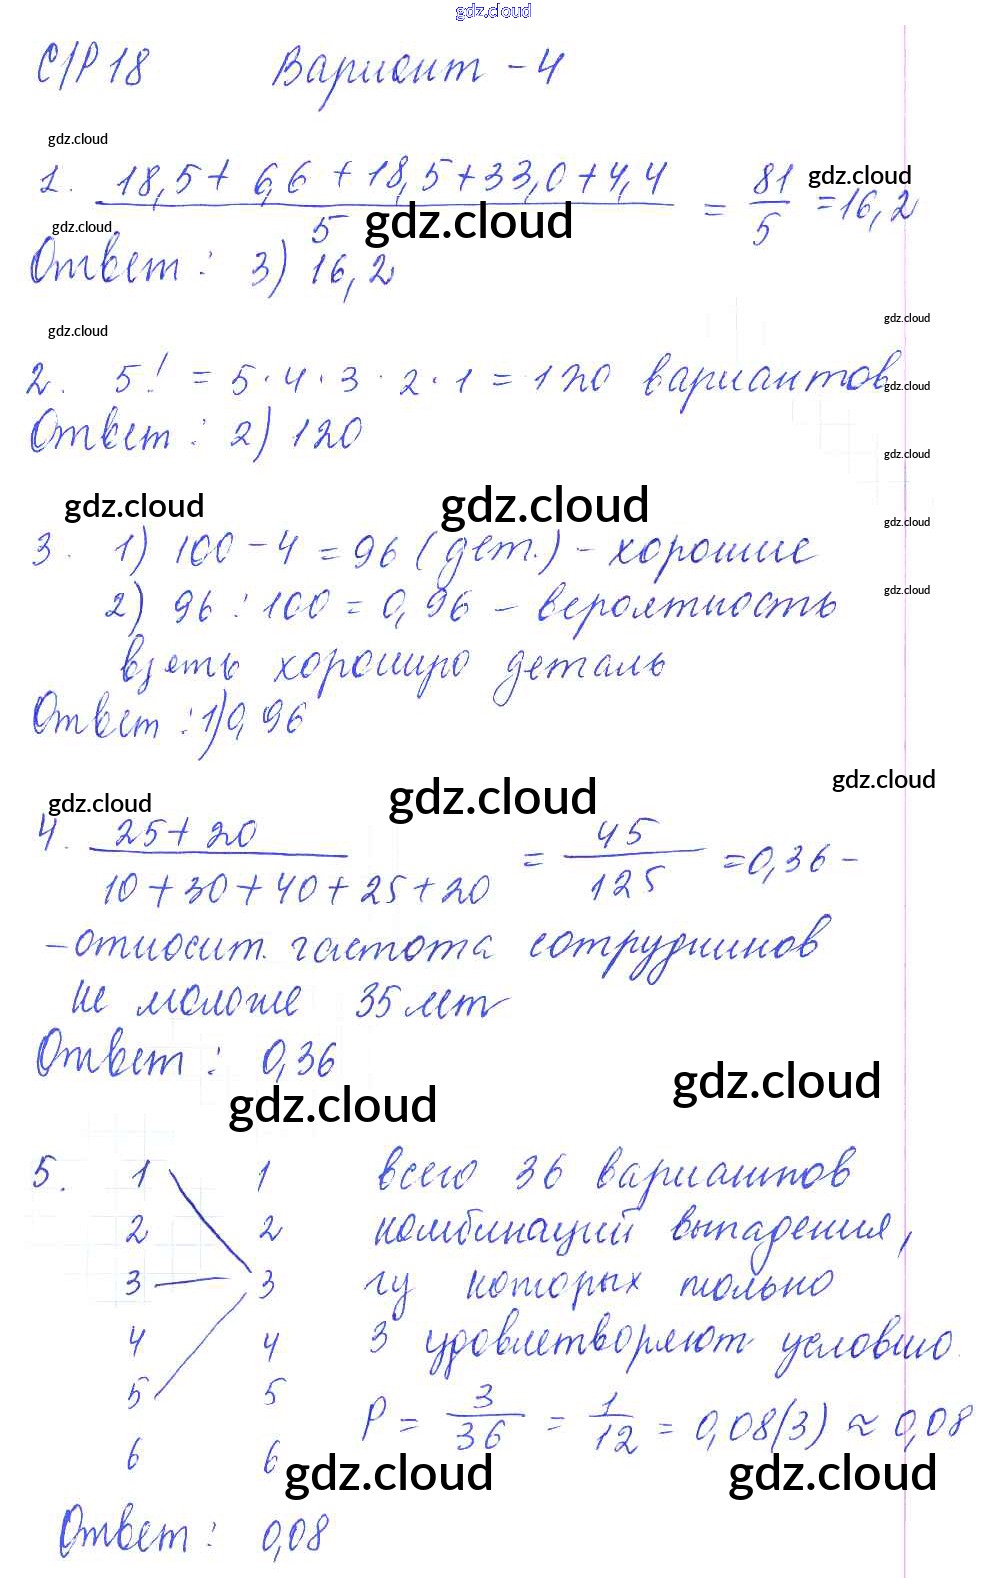 gdz.cloud
С/Р 18 Вариант - 4
gdz.cloud
1. 18,5 + 6,6 + 18,5 + 33,0 + 4,4 / 5 = 81 / 5 = 16,2
gdz.cloud
gdz.cloud gdz.cloud
Ответ: 3) 16,2
gdz.cloud
gdz.cloud
2. 5! = 5 · 4 · 3 · 2 · 1 = 120 вариантов
gdz.cloud
Ответ: 2) 120
gdz.cloud
gdz.cloud gdz.cloud
gdz.cloud
3. 1) 100 - 4 = 96 (дет.) - хорошие
2) 96 : 100 = 0,96 - вероятность
gdz.cloud
взять хорошую деталь
Ответ: 1) 0,96
gdz.cloud
gdz.cloud gdz.cloud
4. 25 + 20 / 10 + 30 + 40 + 25 + 20 = 45 / 125 = 0,36 -
- относит. частота сотрудников
не моложе 35 лет
Ответ: 0,36
gdz.cloud
gdz.cloud
5. 1 1 всего 36 вариантов
2 2 комбинаций выпадения,
3 3 из которых только
4 4 3 удовлетворяют условию.
5 5 P = 3 / 36 = 1 / 12 = 0,08(3) ≈ 0,08
6 6
gdz.cloud gdz.cloud
Ответ: 0,08